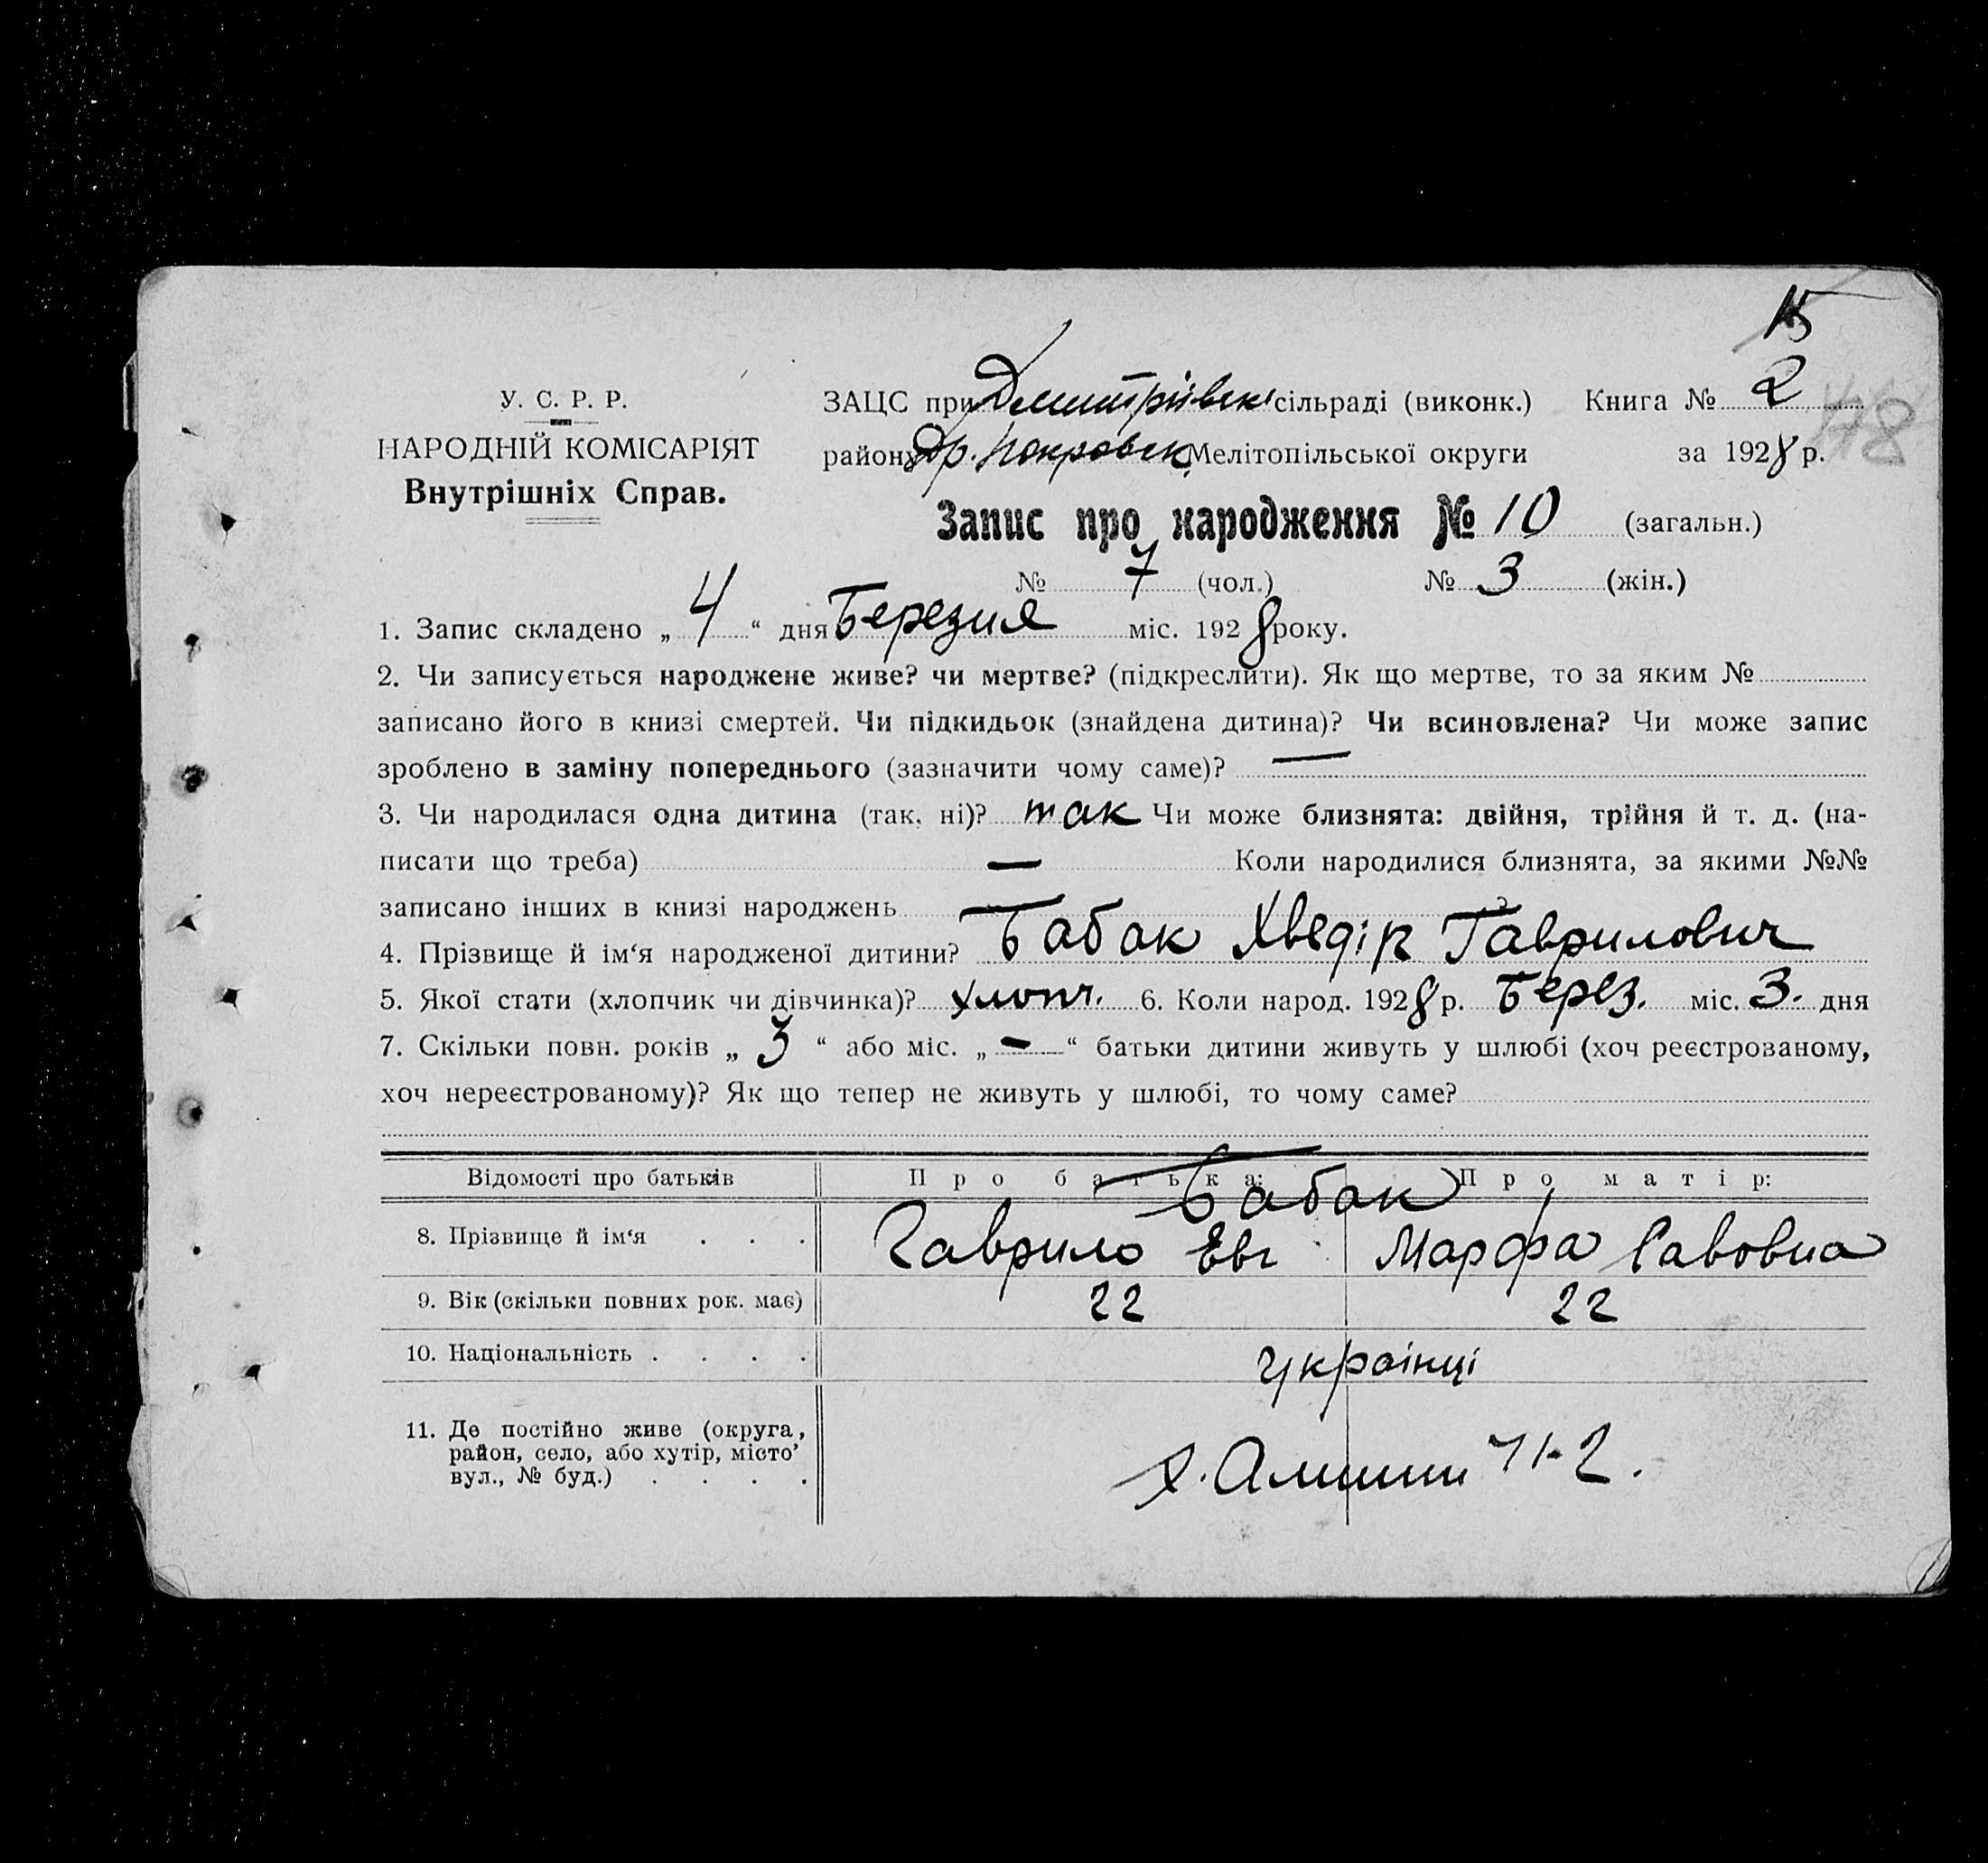 15
У. С. Р. Р.
НАРОДНІЙ КОМІСАРІЯТ
Внутрішніх Справ.
ЗАЦС при Дмитрівськ сільраді (виконк.) Книга № 2
району Др. Покровськ Мелітопільської округи за 1928 р.
48
Запис про народження № 10 (загальн.)
№ 7 (чол.) № 3 (жін.)
1. Запис складено „ 4 “ дня Березня міс. 1928 року.
2. Чи записується народжене живе? чи мертве? (підкреслити). Як що мертве, то за яким №
записано його в книзі смертей. Чи підкидьок (знайдена дитина)? Чи всиновлена? Чи може запис
зроблено в заміну попереднього (зазначити чому саме)? —
3. Чи народилася одна дитина (так, ні)? так Чи може близнята: двійня, трійня й т. д. (на-
писати що треба) — Коли народилися близнята, за якими №№
записано інших в книзі народжень
4. Прізвище й ім‘я народженої дитини? Бабак Хведір Гаврилович
5. Якої стати (хлопчик чи дівчинка)? хлопч. 6. Коли народ. 1928 р. Берез. міс. 3. дня
7. Скільки повн. років „ 3 “ або міс. „ — “ батьки дитини живуть у шлюбі (хоч реєстрованому,
хоч нереєстрованому)? Як що тепер не живуть у шлюбі, то чому саме?
Відомості про батьків Про батька: Про матір:
Бабак
8. Прізвище й ім‘я . . . Гаврило Евг Марфа Савовна
9. Вік (скільки повних рок. має) 22 22
10. Національність . . . . Українці
11. Де постійно живе (округа,
район, село, або хутір, місто’
вул., № буд.) . . . .
х.